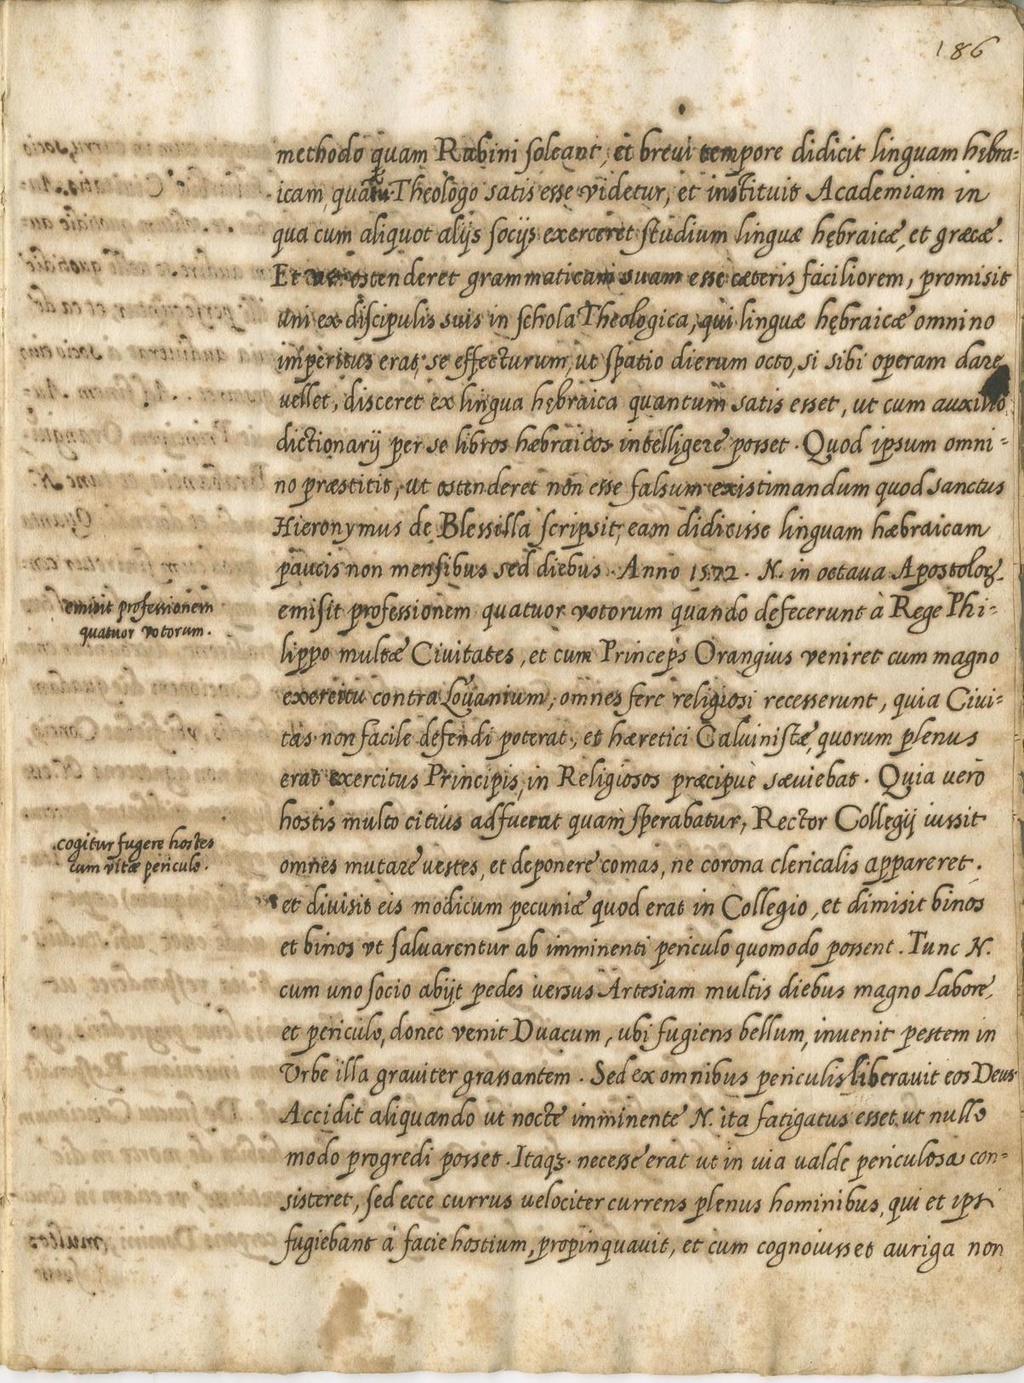 186
methodo quam Rabini soleant, et brevi tempore didicit linguam hębra=
icam, quam Theologo satis esse videtur, et instituit Academiam in
qua cum aliquot alijs socijs exerceret studium linguæ hębraicæ, et græcæ.
Et ut ostenderet grammaticam suam esse cæteris faciliorem, promisit
uni ex discipulis suis in schola Theologica, qui linguæ hębraicæ omnino
imperitus erat, se effecturum, ut spatio dierum octo, si sibi operam dare
vellet, disceret ex lingua hębraica quantum satis esset, ut cum auxilio
dictionarij per se libros hæbraicos intelligere posset. Quod ipsum omni=
no præstitit, ut ostenderet non esse falsum existimandum quod sanctus
Hieronymus de Blessilla scripsit, eam didicisse linguam hæbraicam
paucis non mensibus sed diebus. Anno 1572. N. in octava Apostoloꝝ
emisit professionem
quatuor votorum.
emisit professionem quatuor votorum quando defecerunt à Rege Phi=
lippo multæ Civitates, et cum Princeps Orangius veniret cum magno
exercitu contra Lovanium, omnes fere religiosi recesserunt, quia Civi=
tas non facile defendi poterat, et hæretici Calvinistæ, quorum plenus
erat exercitus Principis, in Religiosos præcipuè sæviebat. Quia verò
hostis multo citius adfuerat quam sperabatur, Rector Collegij iussit
cogitur fugere hostes
cum vitæ periculo.
omnes mutare vestes, et deponere comas, ne corona clericalis appareret.
et divisit eis modicum pecuniæ quod erat in Collegio, et dimisit binos
et binos vt salvarentur ab imminenti periculo quomodo possent. Tunc N.
cum uno socio abijt pedes versus Artesiam multis diebus magno labore,
et periculo, donec venit Duacum, ubi fugiens bellum, invenit pestem in
Vrbe illa graviter grassantem. Sed ex omnibus periculis liberavit eos Deus
Accidit aliquando ut nocte imminente N. ita fatigatus esset, ut nullo
modo progredi posset. Itaqꝫ necesse erat ut in via valde periculosa con=
sisteret, sed ecce currus velociter currens plenus hominibus, qui et ipsi
fugiebant à facie hostium, propinquavit, et cum cognovisset auriga non